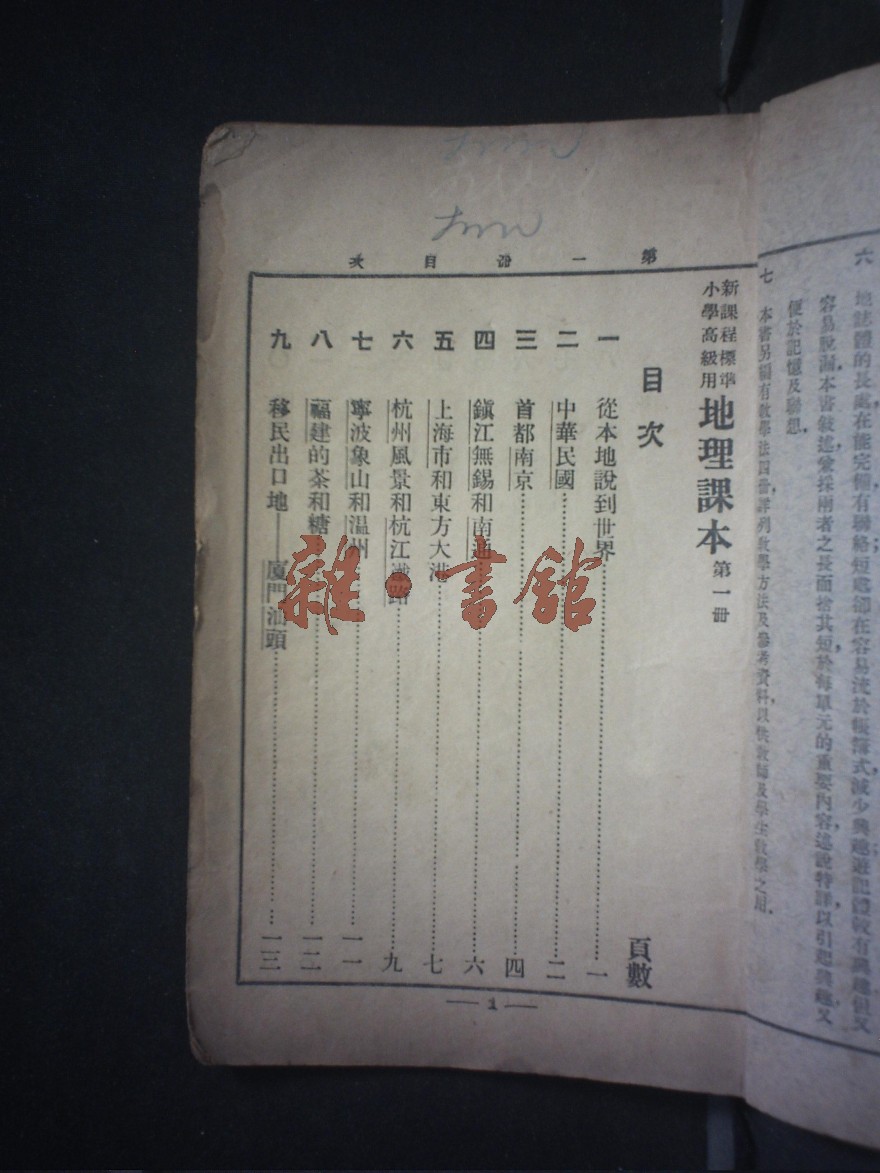 六
地誌體的長處在能完備有聯絡短處卻在容易流於帳簿式減少興趣遊記體較有興趣但又
容易脫漏本書敍述兼採兩者之長而捨其短於每單元的重要內容述說特詳以引起興趣又
便於記憶及聯想.
七 本書另編有教學法四冊詳列教學方法及參考資料以供教師及學生教學之用.
第一冊目次
新課程標準
小學高級用
地理課本 第一冊
目次
頁數
一 從本地說到世界 一
二 中華民國 二
三 首都南京 四
四 鎮江無錫和南通 六
五 上海市和東方大港 七
六 杭州風景和杭江鐵路 九
七 寧波象山和溫州 一一
八 福建的茶和糖 一二
九 移民出口地——廈門汕頭 一三
— 1 —
雜·書館